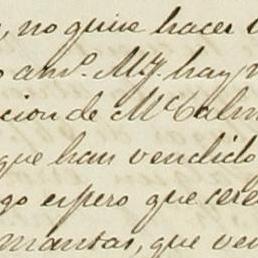 , no quise hacer
am⁰. My. hay
cion de McCalm
que han vendido
go espero que cere
mantas, que ven